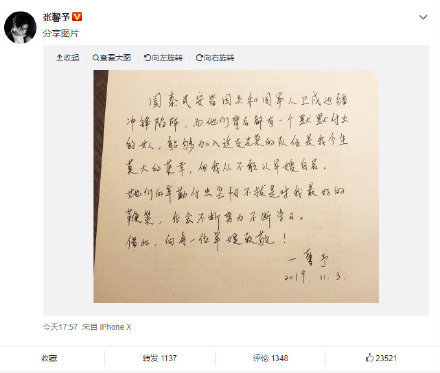 张馨予
分享图片
收起 查看大图 向左旋转 向右旋转
国泰民安皆因点和国军人卫戍边疆
冲锋陷阵，而他们背后都有一个默默付出
的女人，能够加入这支光荣的队伍是我今生
莫大的荣幸，但我从不敢以军嫂自居。
她们的辛勤付出坚韧不拔是对我最好的
鞭策，我会不断努力不断学习。
借此，向每一位军嫂致敬！
一馨予
2019. 11. 3.
今天17:57 来自 iPhone X
收藏 转发 1137 评论 1348 23521